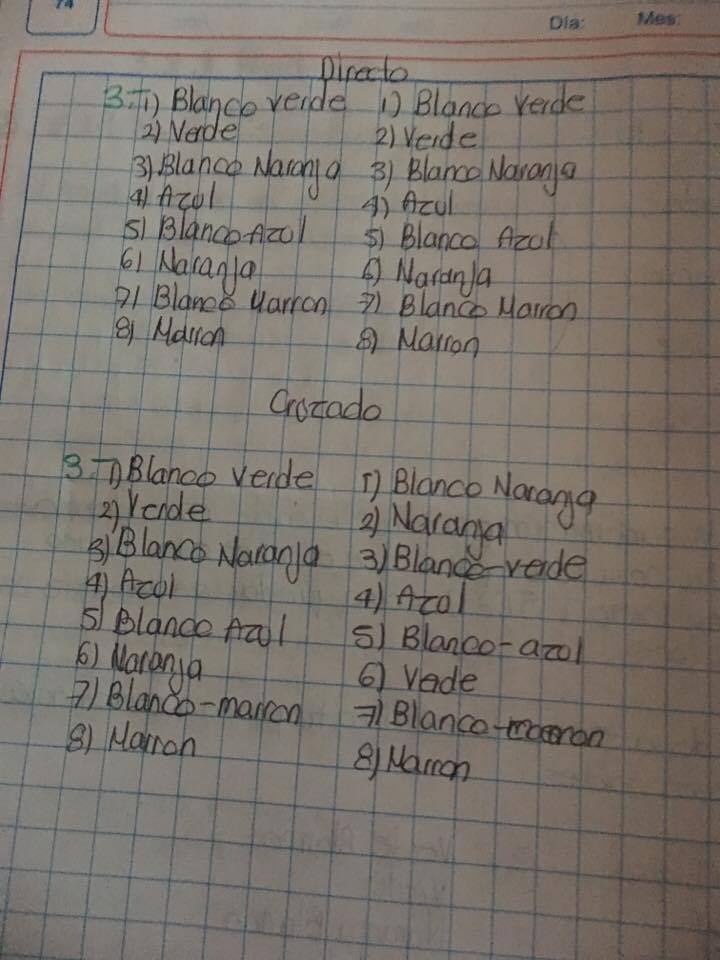 74
Dia: Mes:
Directo
3.- 1) Blanco verde 1) Blanco Verde
2) Verde 2) Verde
3) Blanco Naranja 3) Blanco Naranja
4) Azul 4) Azul
5) Blanco Azul 5) Blanco Azul
6) Naranja 6) Naranja
7) Blanco Marron 7) Blanco Marron
8) Marron 8) Marron
Cruzado
3.- 1) Blanco Verde 1) Blanco Naranja
2) Verde 2) Naranja
3) Blanco Naranja 3) Blanco-verde
4) Azul 4) Azul
5) Blanco Azul 5) Blanco-azul
6) Naranja 6) Verde
7) Blanco-marron 7) Blanco-marron
8) Marron 8) Marron